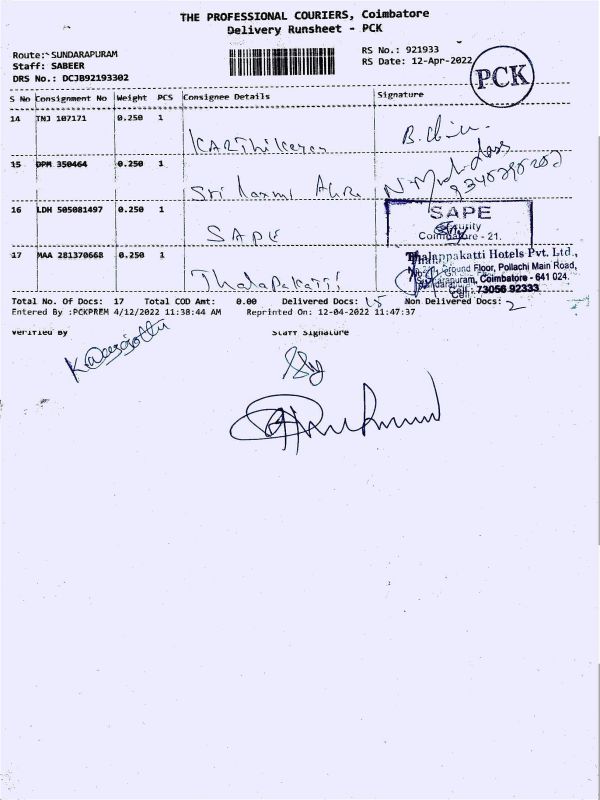 THE PROFESSIONAL COURIERS, Coimbatore
Delivery Runsheet - PCK
Route: SUNDARAPURAM
Staff: SABEER
DRS No.: DCJB92193302
RS No.: 921933
RS Date: 12-Apr-2022
PCK
S No Consignment No Weight PCS Consignee Details Signature
14 TNJ 107171 0.250 1 KARThikeyan
15 DPM 350464 0.250 1 Sri Laxmi
16 LDH 505081497 0.250 1 SAPE
SAPE
Security
Coimbatore - 21.
17 MAA 281370668 0.250 1 Thalapakatti
Thalappakatti Hotels Pvt. Ltd.,
Ground Floor, Pollachi Main Road,
Sundarapuram, Coimbatore - 641 024.
Cell : 73056 92333
Total No. Of Docs: 17 Total COD Amt: 0.00 Delivered Docs: 15 Non Delivered Docs: 2
Entered By :PCKPREM 4/12/2022 11:38:44 AM Reprinted On: 12-04-2022 11:47:37
Verified By Staff Signature